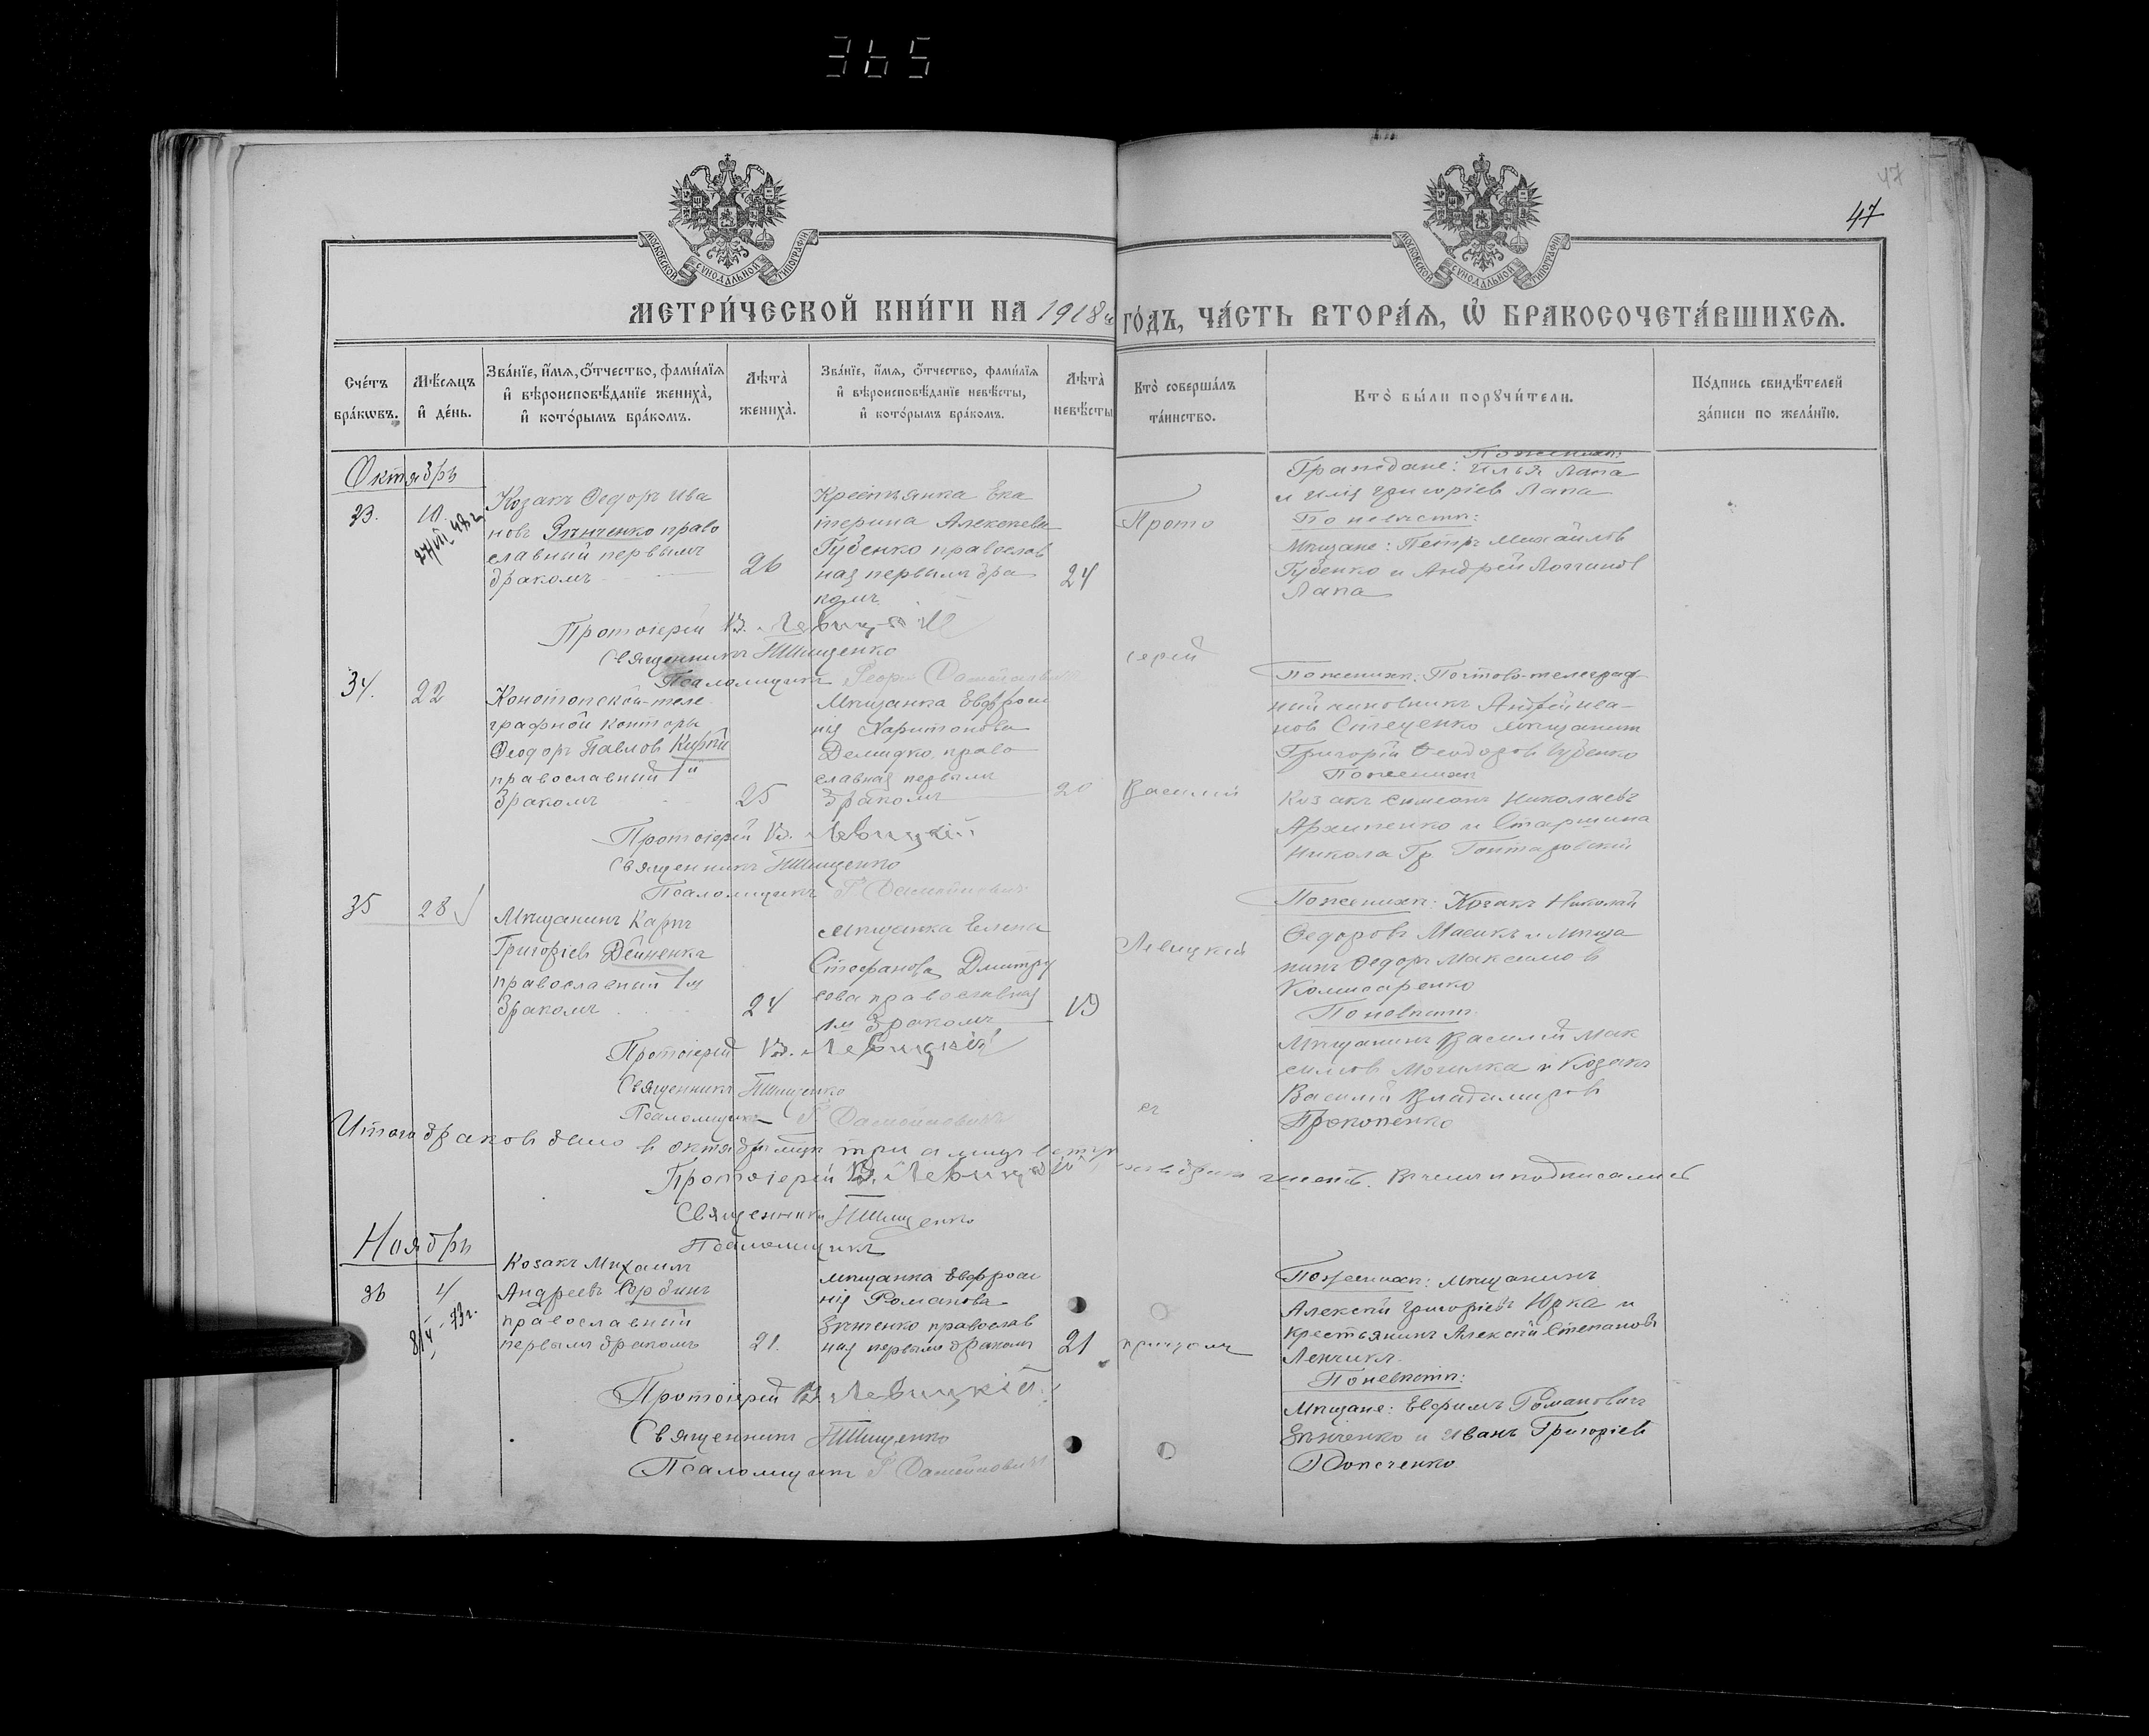 365
47
47
МОСКОВСКОЙ СѴНОДАЛЬНОЙ ТИПОГРАФІИ
МОСКОВСКОЙ СѴНОДАЛЬНОЙ ТИПОГРАФІИ
МЕТРИ́ЧЕСКОЙ КНИ́ГИ НА 1918 й ГО́ДЪ, ЧА́СТЬ ВТОРА́Ѧ, Ѡ҆ БРАКОСОЧЕТА́ВШИХСѦ.
Сче́тъ бра́кѡвъ.
Мѣ́сѧцъ и҆ де́нь.
Зва́нїе, и҆́мѧ, ѻ҆́тчество, фами́лїѧ и҆ вѣроисповѣ́данїе жениха̀, и҆ кото́рымъ бра́комъ.
Лѣта̀ жениха̀.
Зва́нїе, и҆́мѧ, ѻ҆́тчество, фами́лїѧ и҆ вѣроисповѣ́данїе невѣ́сты, и҆ кото́рымъ бра́комъ.
Лѣта̀ невѣ́сты
Кто̀ соверша́лъ та́инство.
Кто̀ бы́ли порꙋчи́тели.
По́дпись свидѣ́телей за́писи по жела́нїю.
Октябрь
Козакъ Ѳедоръ Ива
новъ Зѣнченко право
славный первымъ
бракомъ
26
Крестьянка Ека
терина Алексеев
Гуденко православ
ная первымъ бра
комъ
24
Прото
По женихѣ:
Граждане: Илья Лапа
и Илія Григоріев Лапа
По невѣстѣ:
Мѣщане: Петръ Михайловъ
Гуденко и Андрей Логинов
Лапа
Протоіерей В. Левицкій
Священникъ Н Шищенко
Псаломщикъ
іерей
34. 22
Конотопской теле
графной конторы
Ѳеодоръ Павлов
православный 1й
бракомъ
25
Мѣщанка Евфроси
нія Харитонова
право
славная первымъ
бракомъ
20
Василій
По женихѣ: Почтово-телеграф
ный чиновникъ Андрей Ива-
нов Стеценко мѣщанин
Григорій Ѳеодоров
По женихѣ
Козакъ Симеонъ Николаевъ
Архипенко и Старшина
Никола Гр.
Протоіерей В. Левицкій
Священникъ Н Шищенко
Псаломщикъ
35 28
Мѣщанинъ Карпъ
Григоріевъ Дейненко
православный 1м
бракомъ
24
мѣщанка Елена
Стефанова Дмитру
сова православная
1м бракомъ
19
Левицкій
По женихѣ: Козакъ Николай
Ѳедоровъ Масикъ и мѣща
нинъ Ѳедоръ Максимов
Комисаренко
По невѣстѣ
Мѣщанинъ Василій Мак
симов Могилка и Козакъ
Василій Владимиров
Прокопенко
Протоіерей В. Левицкій
Священникъ Н Шищенко
Псаломщикъ
съ
Итого браков было в октябрѣ мцѣ три
Протоіерей В. Левицкій
Священникъ Н Шищенко
Псаломщикъ
Ноябрь
36 4
Козакъ Михаилъ
Андреевъ
православный
первымъ бракомъ
21.
мѣщанка Евфроси
нія Романова
Зѣнченко православ
ная первымъ бракомъ
21
причтомъ
По женихѣ: мѣщанинъ
Алексѣй Григоріевъ Юрка и
крестьянинъ Алексѣй Степановъ
Ленчикъ
По невѣстѣ:
Мѣщане: Евфимъ Романовичъ
Зѣнченко и Иванъ Григоріев
Протоіерей В. Левицкій
Священникъ Н Шищенко
Псаломщикъ